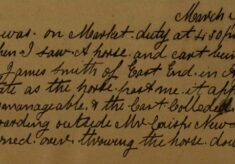 March
was on Market duty at 4.30 p
hen I saw A horse and cart bein
James Smith of East End in
ate as the horse past me it app
nmanageable & the Cart Collided
oarding outside Mr News
rned over throwing the horse dow